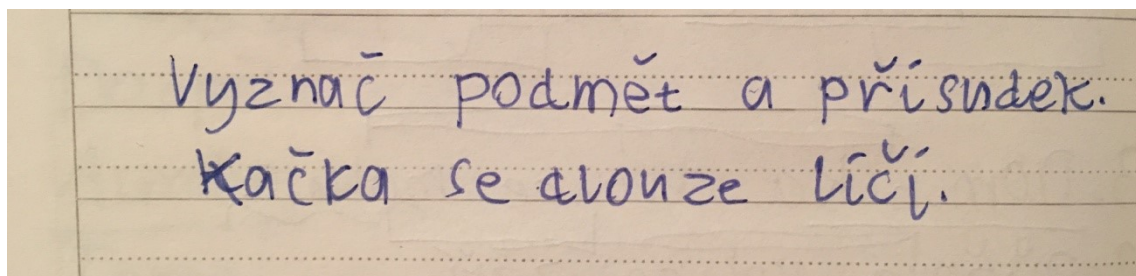 Vyznač podmět a přísudek.
Kačka se dlouze líčí.